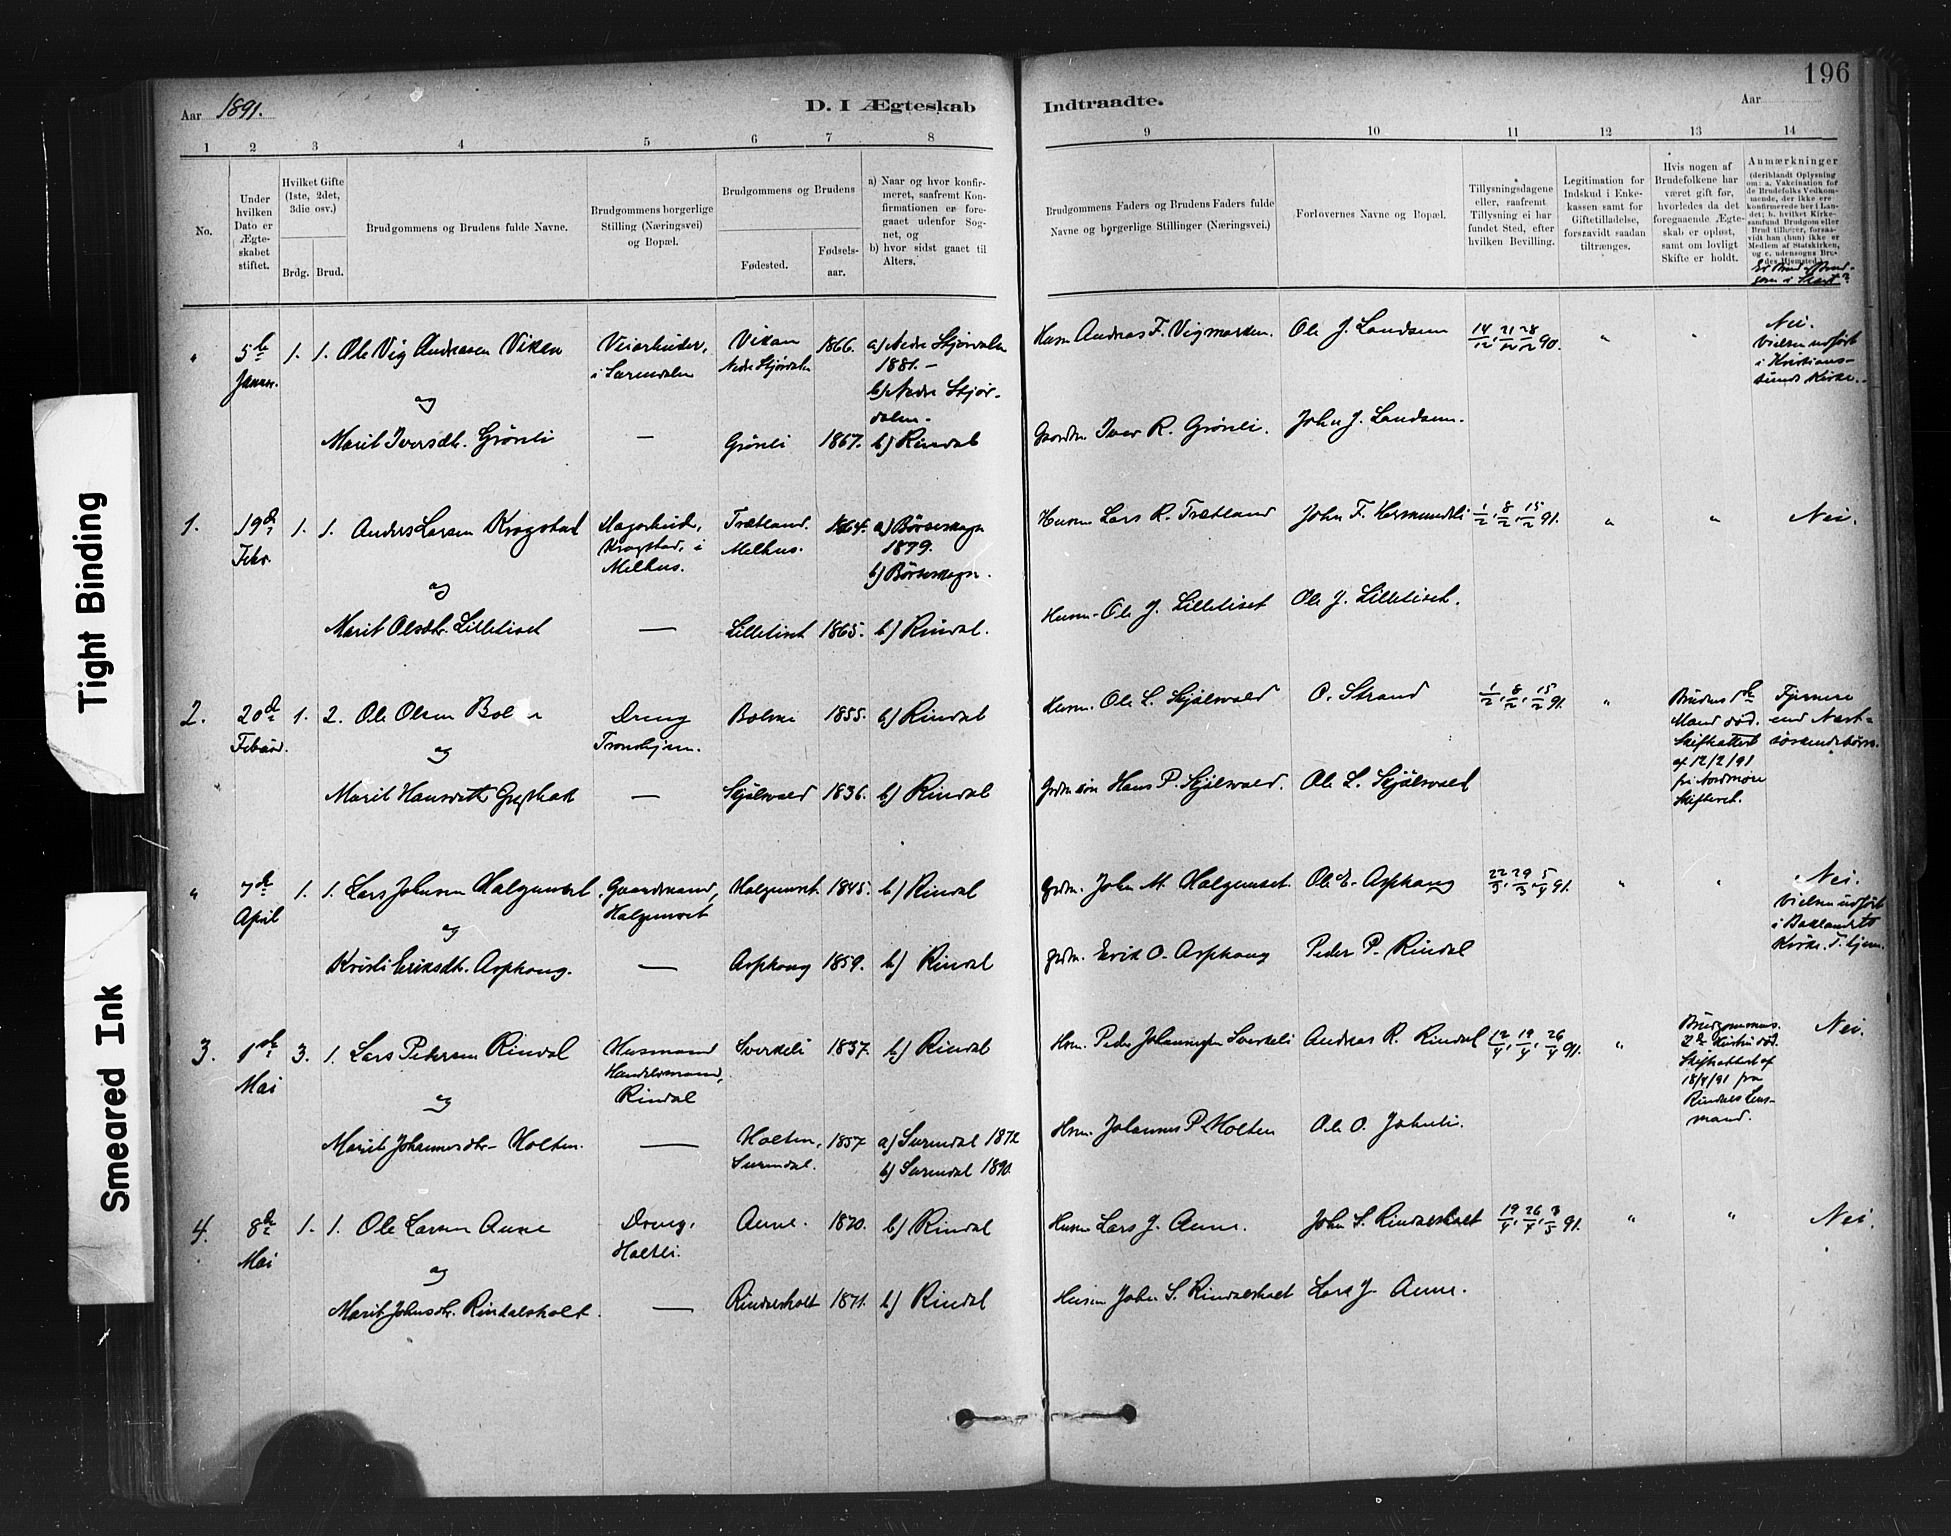 196
Aar 1891.
D. I Ægteskab Indtraadte.
Aar
1 2 3 4 5 6 7 8 9 10 11 12 13 14
No.
Under hvilken Dato er Ægteskabet stiftet.
Hvilket Gifte (1ste, 2det, 3die osv.)
Brdg. Brud.
Brudgommens og Brudens fulde Navne.
Brudgommens borgerlige Stilling (Næringsvei) og Bopæl.
Brudgommens og Brudens
Fødested.
Fødselsaar.
a) Naar og hvor konfirmeret, saafremt Konfirmationen er foregaaet udenfor Sognet, og
b) hvor sidst gaaet til Alters.
Brudgommens Faders og Brudens Faders fulde Navne og borgerlige Stillinger (Næringsvei.)
Forlovernes Navne og Bopæl.
Tillysningsdagene eller, saafremt Tillysning ei har fundet Sted, efter hvilken Bevilling.
Legitimation for Indskud i Enkekassen samt for Giftetilladelse, forsaavidt saadan tiltrænges.
Hvis nogen af Brudefolkene har været gift før, hvorledes da det foregaaende Ægteskab er opløst, samt om lovligt Skifte er holdt.
Anmærkninger (deriblandt Oplysning om: a. Vakcination for de Brudefolks Vedkommende, der ikke ere konfirmerede her i Landet; b. hvilket Kirkesamfund Brudgom eller Brud tilhører, forsaavidt han (hun) ikke er Medlem af Statskirken, og c. udensogns Brudes Hjemsted.)
" 5te Januar. 1. 1. Ole Vig Andreasen Viken Veiarbeider, i Surendalen Vikan Nedre Stjørdalen 1866. a) Nedre Stjørdalen 1881. – b) Nedre Stjørdalen. Husm Andreas F. Vigmarken. Ole J. Landsem 14/12, 21/12, 28/12 90. " " Nei. Vielsen udført i Kristianssunds Kirke.
og
Marit Iversdtr. Grönli — Grönli 1867. b) Rindal Gaardm. Iver R. Grönli. John J. Landsem.
1. 19de Febr. 1. 1. Anders Larsen Krogstad Krogstad, i Melhus. Trætland. Melhus. 1864. a) Börseskogn 1879. b) Börseskogn. Husm Lars R. Trætland John F. Hermundsli 1/2, 8/2, 15/2 91. " " Nei.
og
Marit Olsdtr. Lilleliset — Lilleliset 1865. b) Rindal. Husm. Ole J. Lilleliset Ole J. Lilleliset.
2. 20de Februar. 1. 2. Ole Olsen Dreng Trondhjem. Bolme 1855. b) Rindal Husm. Ole L. Skjölsvold O. Strand 1/2, 8/2, 15/2 91. " Brudens Mand död. Skifteattest af 12/2/91 fra Nordmöre Skifteret. Fjernere end Næstsöskendebörn.
og
Marit Hansdatter — Skjölsvold 1836. b) Rindal Hans P. Skjölsvold. Ole L. Skjölsvold
" 7de April 1. 1. Lars Johnsen Halgunset, Gaardmand, Halgunset Halgunset. 1845. b) Rindal Grdm. John M. Halgunset. Ole E. Asphaug 22/3, 29/3, 5/4 91. " " Nei. Vielsen udført i Baklandets Kirke. T.hjem.
og
Kristi Eriksdtr. Asphaug. — Asphaug 1859. b) Rindal Grdm. Erik O. Asphaug Peder P. Rindal
3. 1ste Mai 3. 1. Lars Pedersen Rindal Husmand Handelsmand, Rindal Sverkeli 1837. b) Rindal Hsm. Peder Sverkeli Andreas R. Rindal 12/4, 19/4, 26/4 91. " Brudgommens 2den Hustru död. Skifteattest af 18/4/91 fra Rindals Lensmand. Nei.
og
Marit Johannesdtr. Holten. — Holten, Surendal. 1857 a) Surendal 1872 b) Surendal 1890. Hsm. Johannes P. Holten Ole O. Johnli.
4. 8de Mai 1. 1. Ole Larsen Aune Dreng, Holtli. Aune. 1870. b) Rindal Husm Lars J. Aune. John S. Rindalsholt 19/4, 26/4, 3/5 91. " " Nei.
og
Marit Johnsdtr. Rindalsholt. — Rindalsholt 1871. b) Rindal Husm John S. Rindalsholt Lars J. Aune.
Tight Binding
Smeared Ink